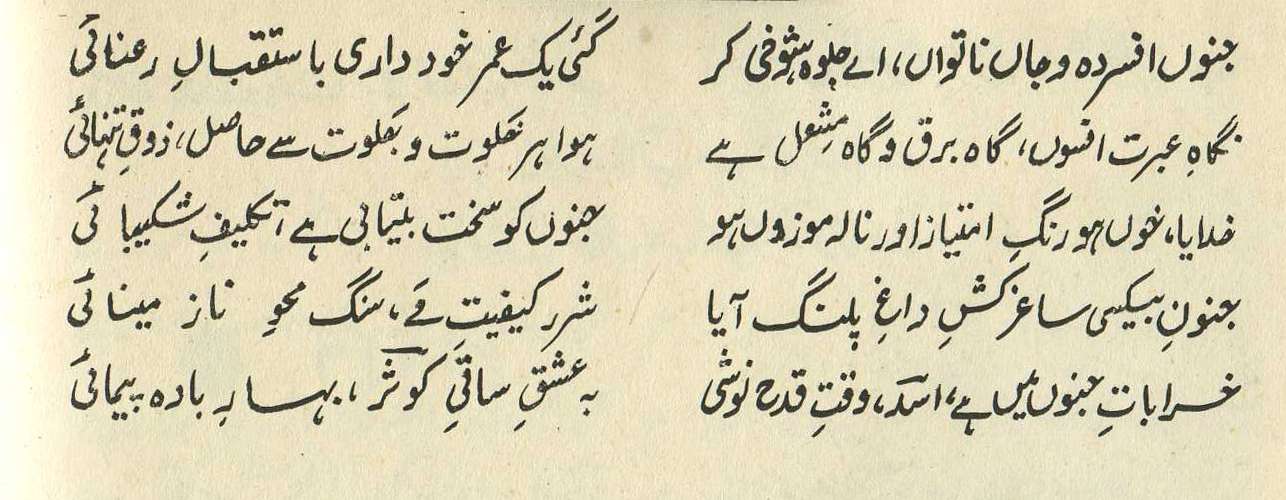 جنوں افسردہ و جاں ناتواں، اے جلوہ شوخی کر گئی یک عمر خود داری باستقبالِ رعنائی
نگاہِ عبرت افسوں، گاہ برق و گاہ مشعل ہے ہوا ہر خلوت و جلوت سے حاصل، ذوقِ تنہائی
خدایا، خوں ہو رنگِ امتیاز اور نالہ موزوں ہو جنوں کو سخت بیتابی ہے تکلیفِ شکیبائی
جنونِ بیکسی ساغر کشِ داغِ پلنگ آیا شرر کیفیتِ مے، سنگ محوِ ناز مینائی
خراباتِ جنوں میں ہے، اسدؔ، وقتِ قدح نوشی بہ عشقِ ساقیِ کوثر، بہارِ بادہ پیمائی